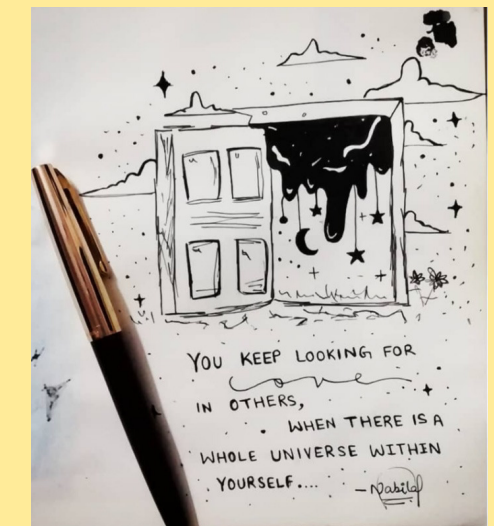 YOU KEEP LOOKING FOR
love
IN OTHERS,
WHEN THERE IS A
WHOLE UNIVERSE WITHIN
YOURSELF....
- Nabila